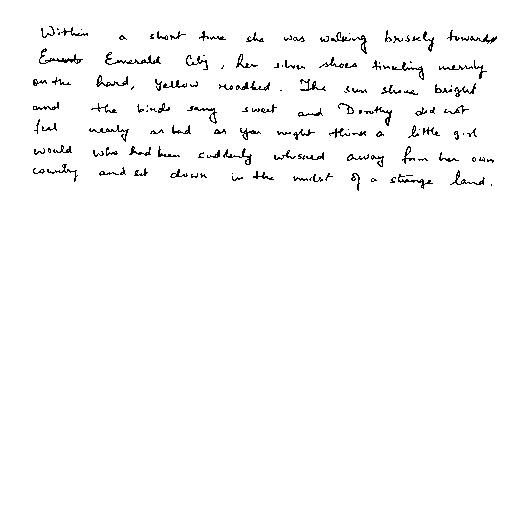 Within a short time she was walking briskly towards
Emerald City, her silver shoes tinkling merrily
on the hard, yellow roadbed. The sun shone bright
and the birds sang sweet and Dorothy did not
feel nearly as bad as you might think a little girl
would who had been suddenly whisked away from her own
country and set down in the midst of a strange land.